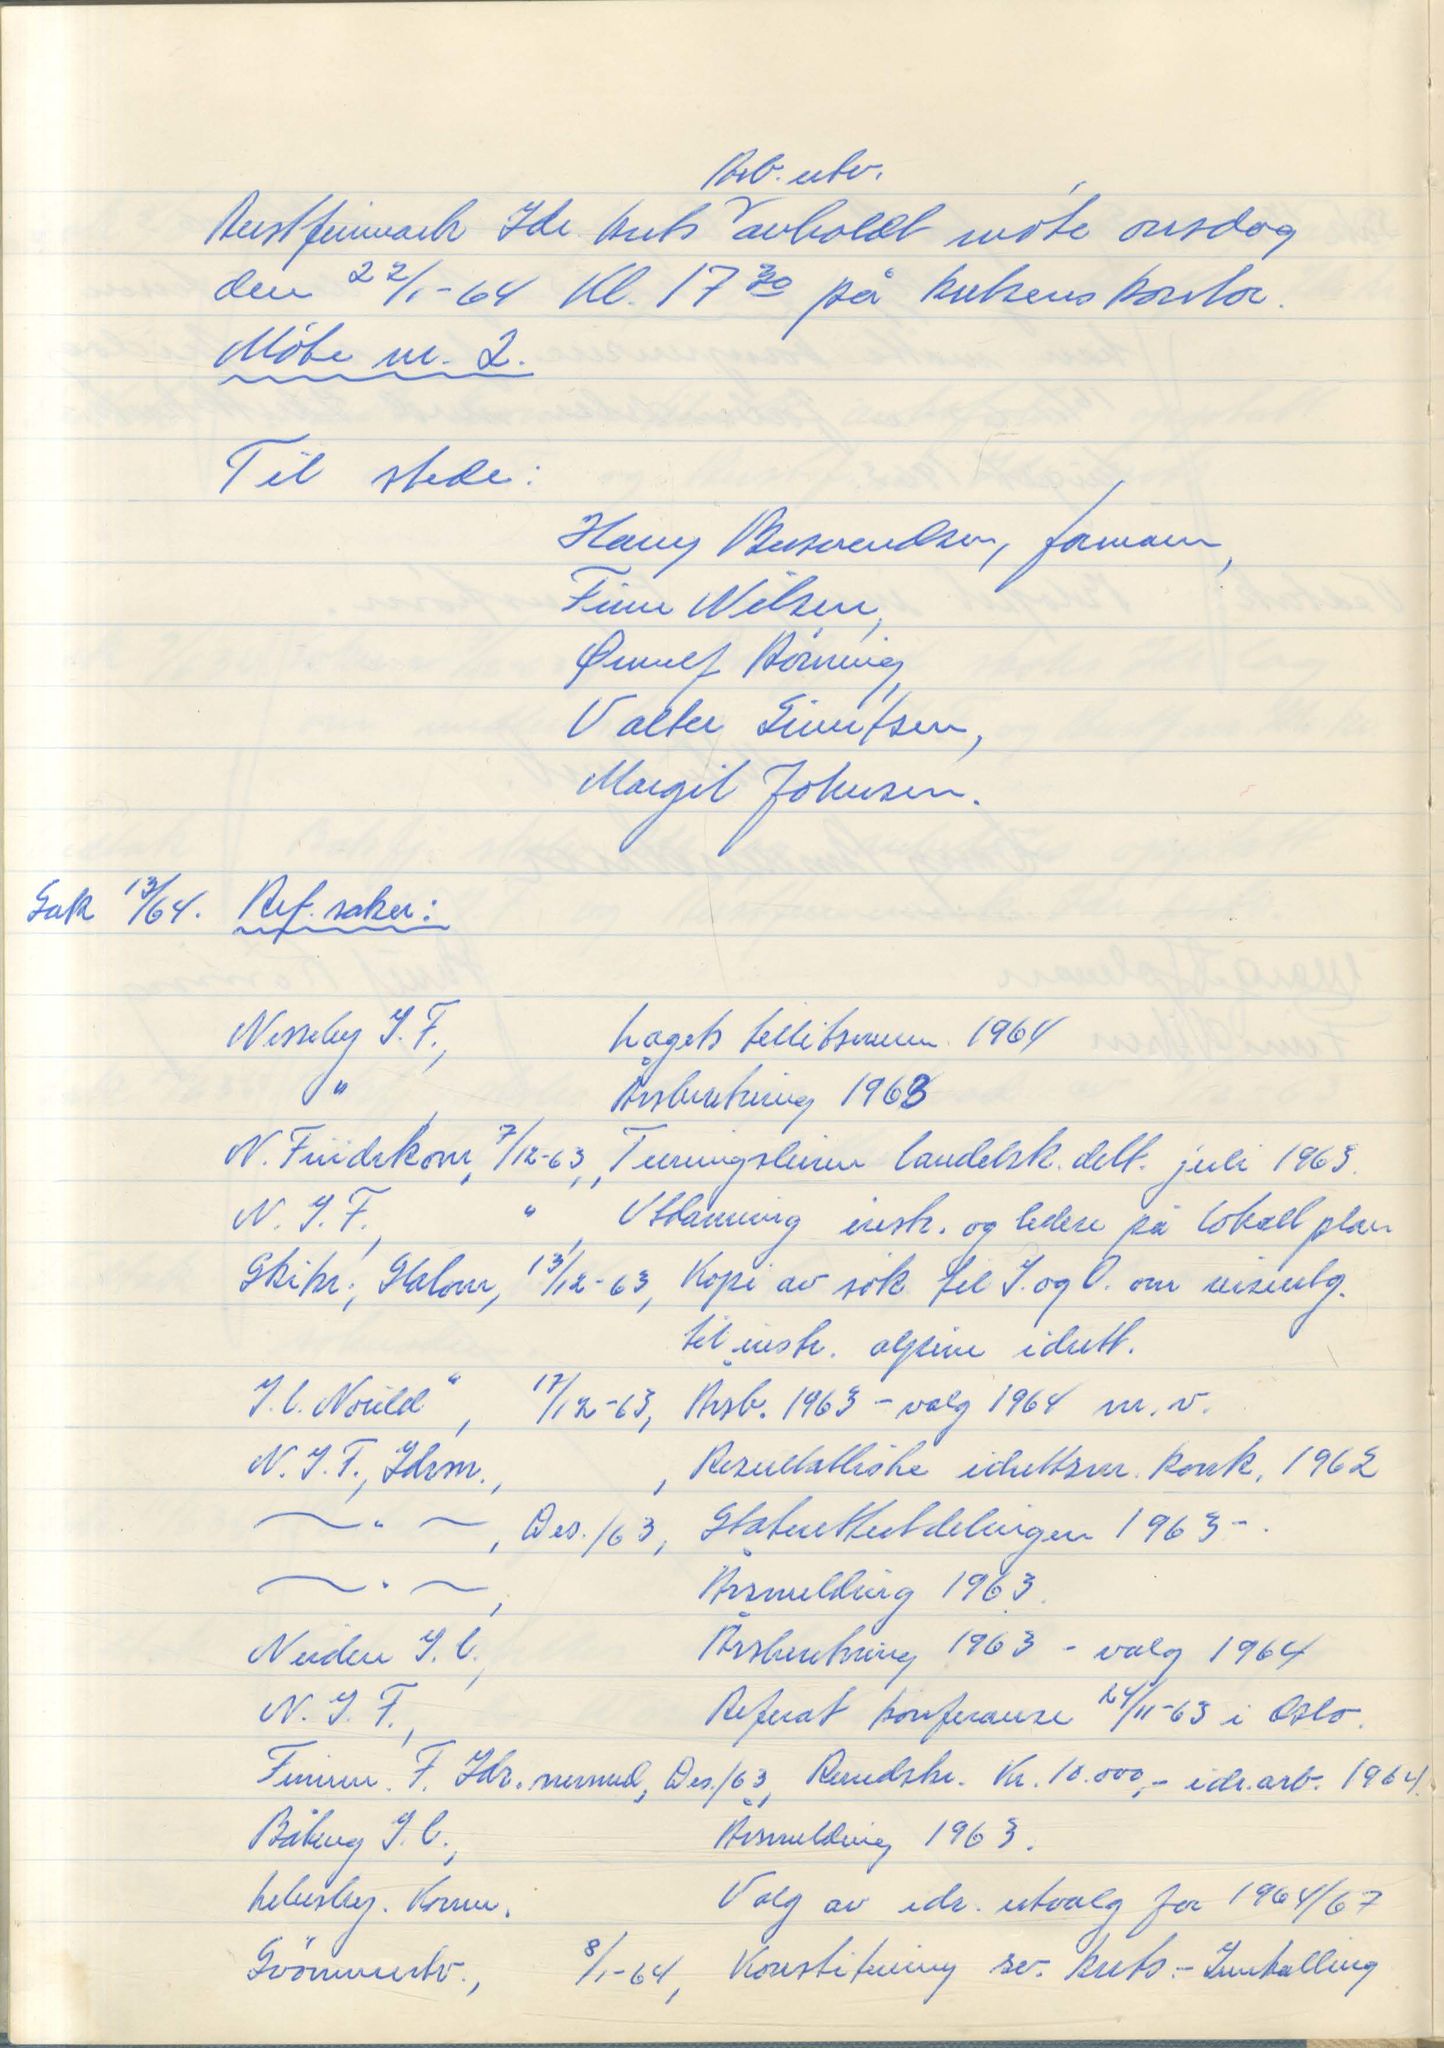 Arb. utv.
Austfinnmark Idr. krets avholdt møte onsdag
den 22/1-64 Kl. 17 30 på kretsens kontor.
Møte nr. 2.
Til stede:
Harry formann,
Finn Nilsen,
Ørnulf Rönning,
Valter
Margit Johnsen.
Sak 13/64. Ref. saker:
Nesseby I. F., Lagets tillitsmenn 1964
" , Årsberetning 1963
N. Friidr.kom, 7/12-63, landslk. delt. juli 1963.
N. I. F., " , Utdanning instr. og ledere på lokalt plan
Skikr., Slalom, 13/12-63, Kopi av søk til S. og U. om
til instr. alpine idrett.
I.l. Nordild", 17/12-63, Årsb. 1963 - valg 1964 m. v.
N. I. F., Idrm., , Resultatliste idrettsm. konk. 1962
— " — , Des./63, Statuettutdelingen 1963 -
— " — , Årsmelding 1963.
Neiden I. l., Årsberetning 1963 - valg 1964
N. I. F., Referat konferanse 24/11-63 i Oslo.
Finnm. F. Idr. nemnd, Des./63, Rundskr. Kr. 10.000,- idr. arb. 1964.
Båtng I. l., Årsmelding 1963.
Lebesby. Komm. Valg av idr. utvalg for 1964/67
Svömmeutv., 8/1-64, Konstituering sv. krets. - Innkalling